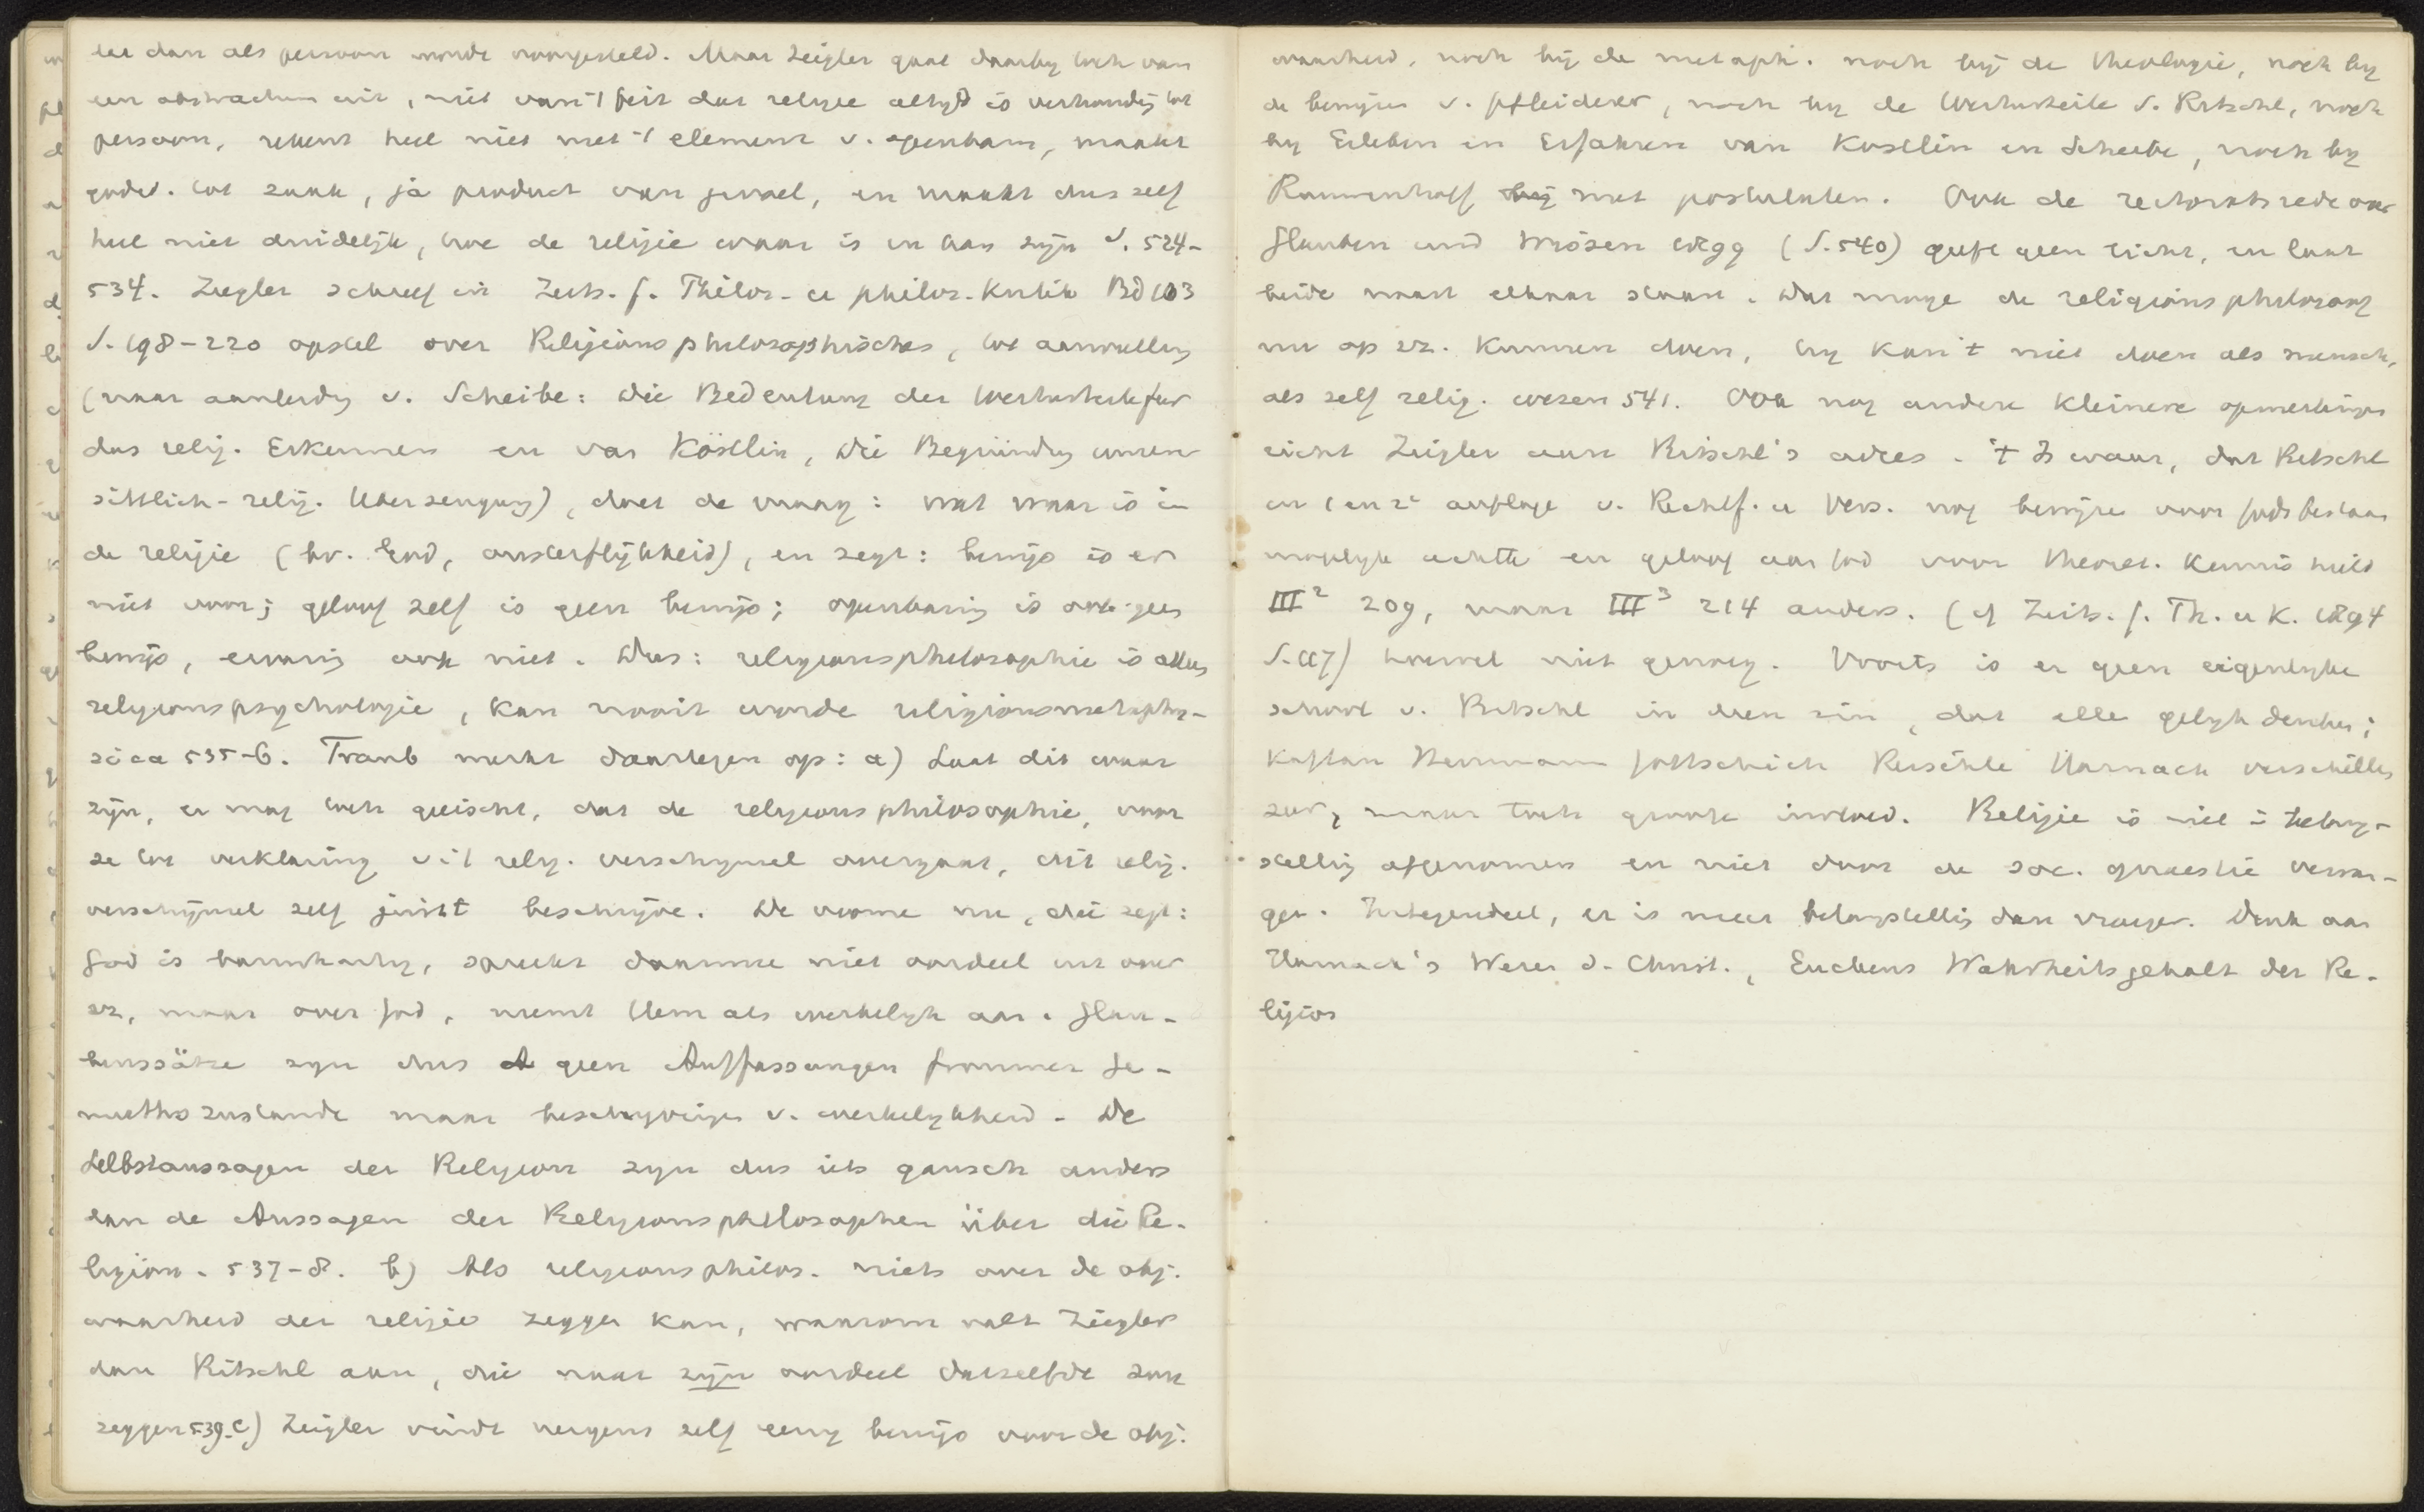 eer dan als persoon worde voorgesteld. Maar Zeigler gaat daarby toch van
een abstractum uit, niet van 't feit dat religie altyd is verhouding tot
persoon, rekent heel niet met 't element v. openbarg, maakt
godsd. tot zaak, ja product van gevoel, en maakt dus zelf
heel niet duidelijk, hoe de religie waar is en kan zijn S. 524-
534. Ziegler schreef in Zeits. f. Philos. u philos. Kritik Bd 103
S. 198-220 opstel over Religionsphilosophisches, tot aanvulling
(naar aanleidg v. Scheibe: Die Bedeutung der Werturteile für
das relig. Erkennen en van Köstlin, Die Begründg unserer
sittlich-relig. Ueberzeugung), doet de vraag: wat waar is in
de religie (bv. God, onsterflijkheid), en zegt: bewijs is er
niet voor; geloof zelf is geen bewijs; openbaring is ook geen
bewijs, ervaring ook niet. Dus: religionsphilosophie is alleen
religionspsychologie, kan nooit worde religionsmetaphy-
sica 535-6. Traub merkt daartegen op: a) Laat dit waar
zijn, er mag toch geeischt, dat de religionsphilosophie, voor
ze tot verklaring v 't relig. verschynsel overgaat, dit relig.
verschijnsel zelf juist beschrijve. De vrome nu, die zegt:
God is barmhartig, spreekt daarmee niet oordeel uit over
zz, maar over God, neemt Hem als werkelyk aan. Glau-
benssätze zyn dus geen Auffassungen frommer Ge-
muethszustande maar beschryvingen v. werkelykheid. De
Selbstaussagen der Religion zyn dus iets gansch anders
dan de Aussagen der Religionsphilosophen über die Re-
ligion. 537-8. b) Als religionsphilos. niets over de obj.
waarheid der religie zeggen kan, waarom valt Ziegler
dan Ritschl aan, die naar zijn oordeel datzelfde zou
zeggen 539. c) Zeigler vindt nergens zelf eenig bewijs voor de obj.
waarheid, noch bij de metaph. noch bij de theologie, noch by
de bewijzen v. Pfleiderer, noch by de Werturteile v. Ritschl, noch
by Erleben en Erfahren van Kostlin en Scheibe, noch by
Rauwenhoff met postulaten. Ook de rectoratsrede over
Glauben und Wissen 1899 (S. 540) geeft geen licht, en laat
beide naast elkaar staan. Dat moge de religionsphilosoof
nu op zz. kunnen doen, hy kan 't niet doen als mensch,
als zelf relig. wezen 541. Ook nog andere kleinere opmerkingen
richt Zeigler aan Ritschl's adres. 't Is waar, dat Ritschl
in 1 en 2e auflage v. Rechtf. u Vers. nog bewijzen voor Gods bestaan
mogelyk achtte en geloof aan God voor theoret. kennis hield
III² 209, maar III³ 214 anders. (cf Zeits. f. Th. u K. 1894
S. 117) hoewel niet genoeg. Voorts is er geen eigenlyke
school v. Ritschl in dien zin, dat alle gelyk denken;
Kaftan Herrmann Gottschick Reischle Harnack verschillen
zeer, maar toch groote invloed. Religie is niet in belang-
stelling afgenomen en niet door de soc. quaestie vervan-
gen. Integendeel, er is meer belangstelling dan vroeger. Denk aan
Harnack's Wesen d. Christ., Euckens Wahrheitsgehalt der Re-
ligion